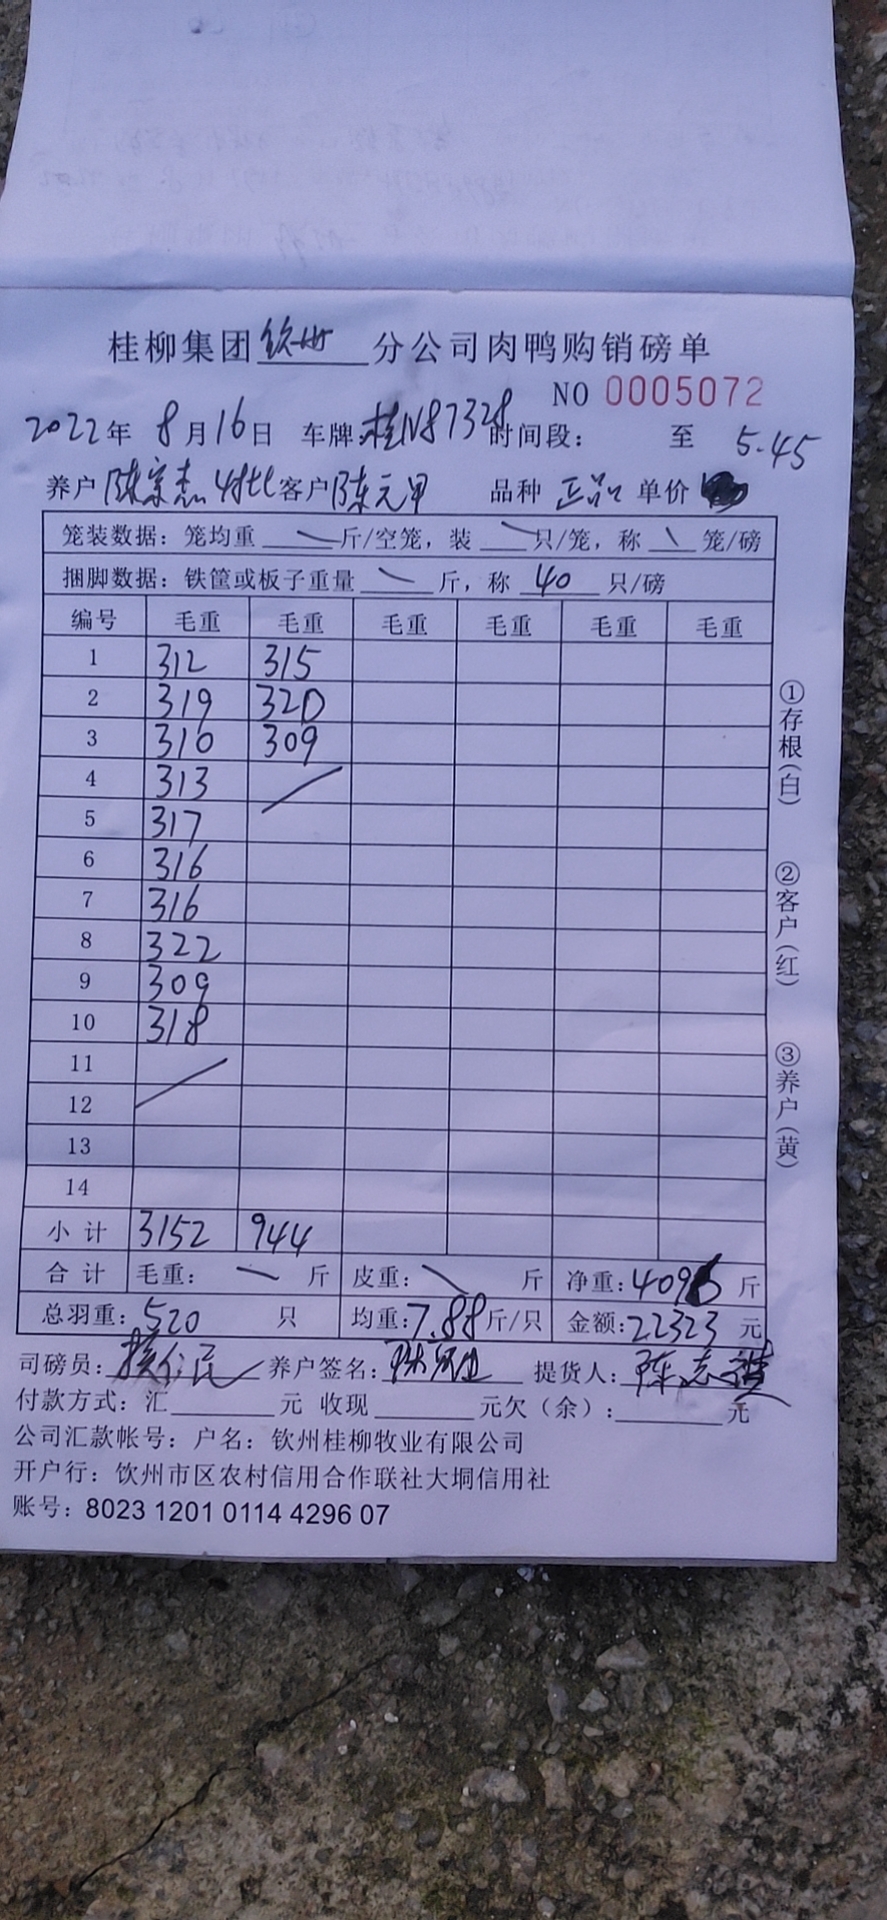 桂柳集团钦州分公司肉鸭购销磅单
NO 0005072
2022年 8月16日 车牌:桂N87328 时间段: 至 5.45
养户 陈宗杰 客户 陈元甲 品种 正品 单价
笼装数据: 笼均重 \ 斤/空笼, 装 \ 只/笼, 称 \ 笼/磅
捆脚数据: 铁筐或板子重量 \ 斤, 称 40 只/磅
编号 毛重 毛重 毛重 毛重 毛重 毛重
1 312 315
2 319 320
3 310 309
4 313 /
5 317
6 316
7 316
8 322
9 309
10 318
11 /
12
13
14
小计 3152 944
合计 毛重: \ 斤 皮重: \ 斤 净重: 4096 斤
总羽重: 520 只 均重: 7.88 斤/只 金额: 22323 元
司磅员: 养户签名: 提货人: 陈志
付款方式: 汇 元 收现 元欠(余): 元
公司汇款帐号: 户名: 钦州桂柳牧业有限公司
开户行: 钦州市区农村信用合作联社大垌信用社
账号: 8023 1201 0114 4296 07
①存根(白)
②客户(红)
③养户(黄)